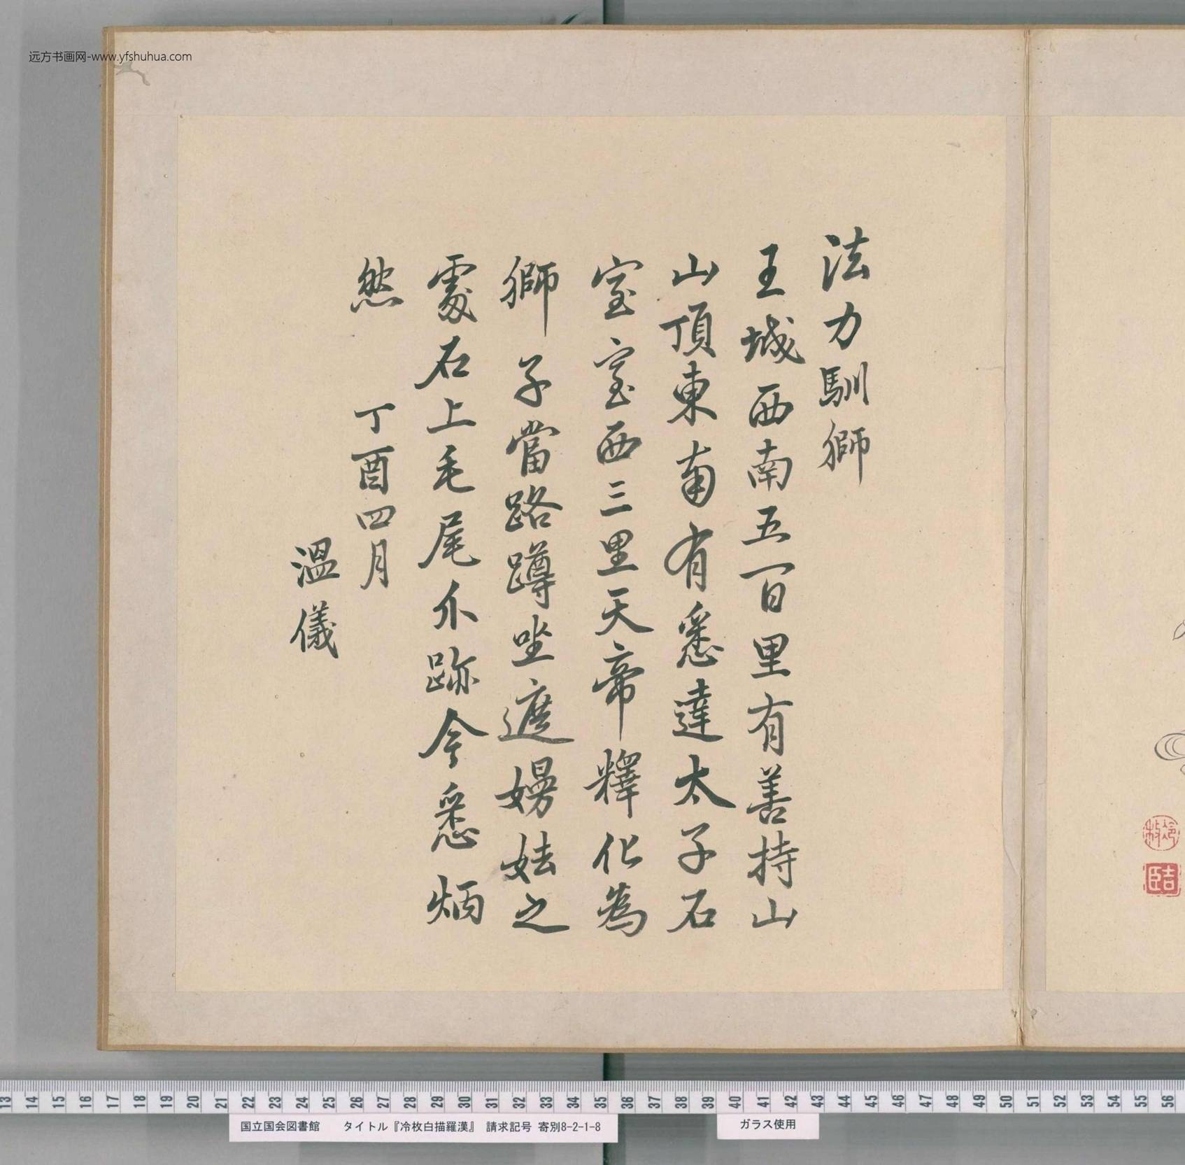 远方书画网-www.yfshuhua.com
法力馴獅
王城西南五百里有善持山
山頂東南有悉達太子石
室室西三里天帝釋化為
獅子當路蹲坐遮嫚妶之
處石上毛尾爪跡今悉炳
然 丁酉四月
溫儀
冷枚
吉臣
13 14 15 16 17 18 19 20 21 22 23 24 25 26 27 28 29 30 31 32 33 34 35 36 37 38 39 40 41 42 43 44 45 46 47 48 49 50 51 52 53 54 55 56
国立国会図書館 タイトル『冷枚白描羅漢』 請求記号 寄別8-2-1-8
ガラス使用